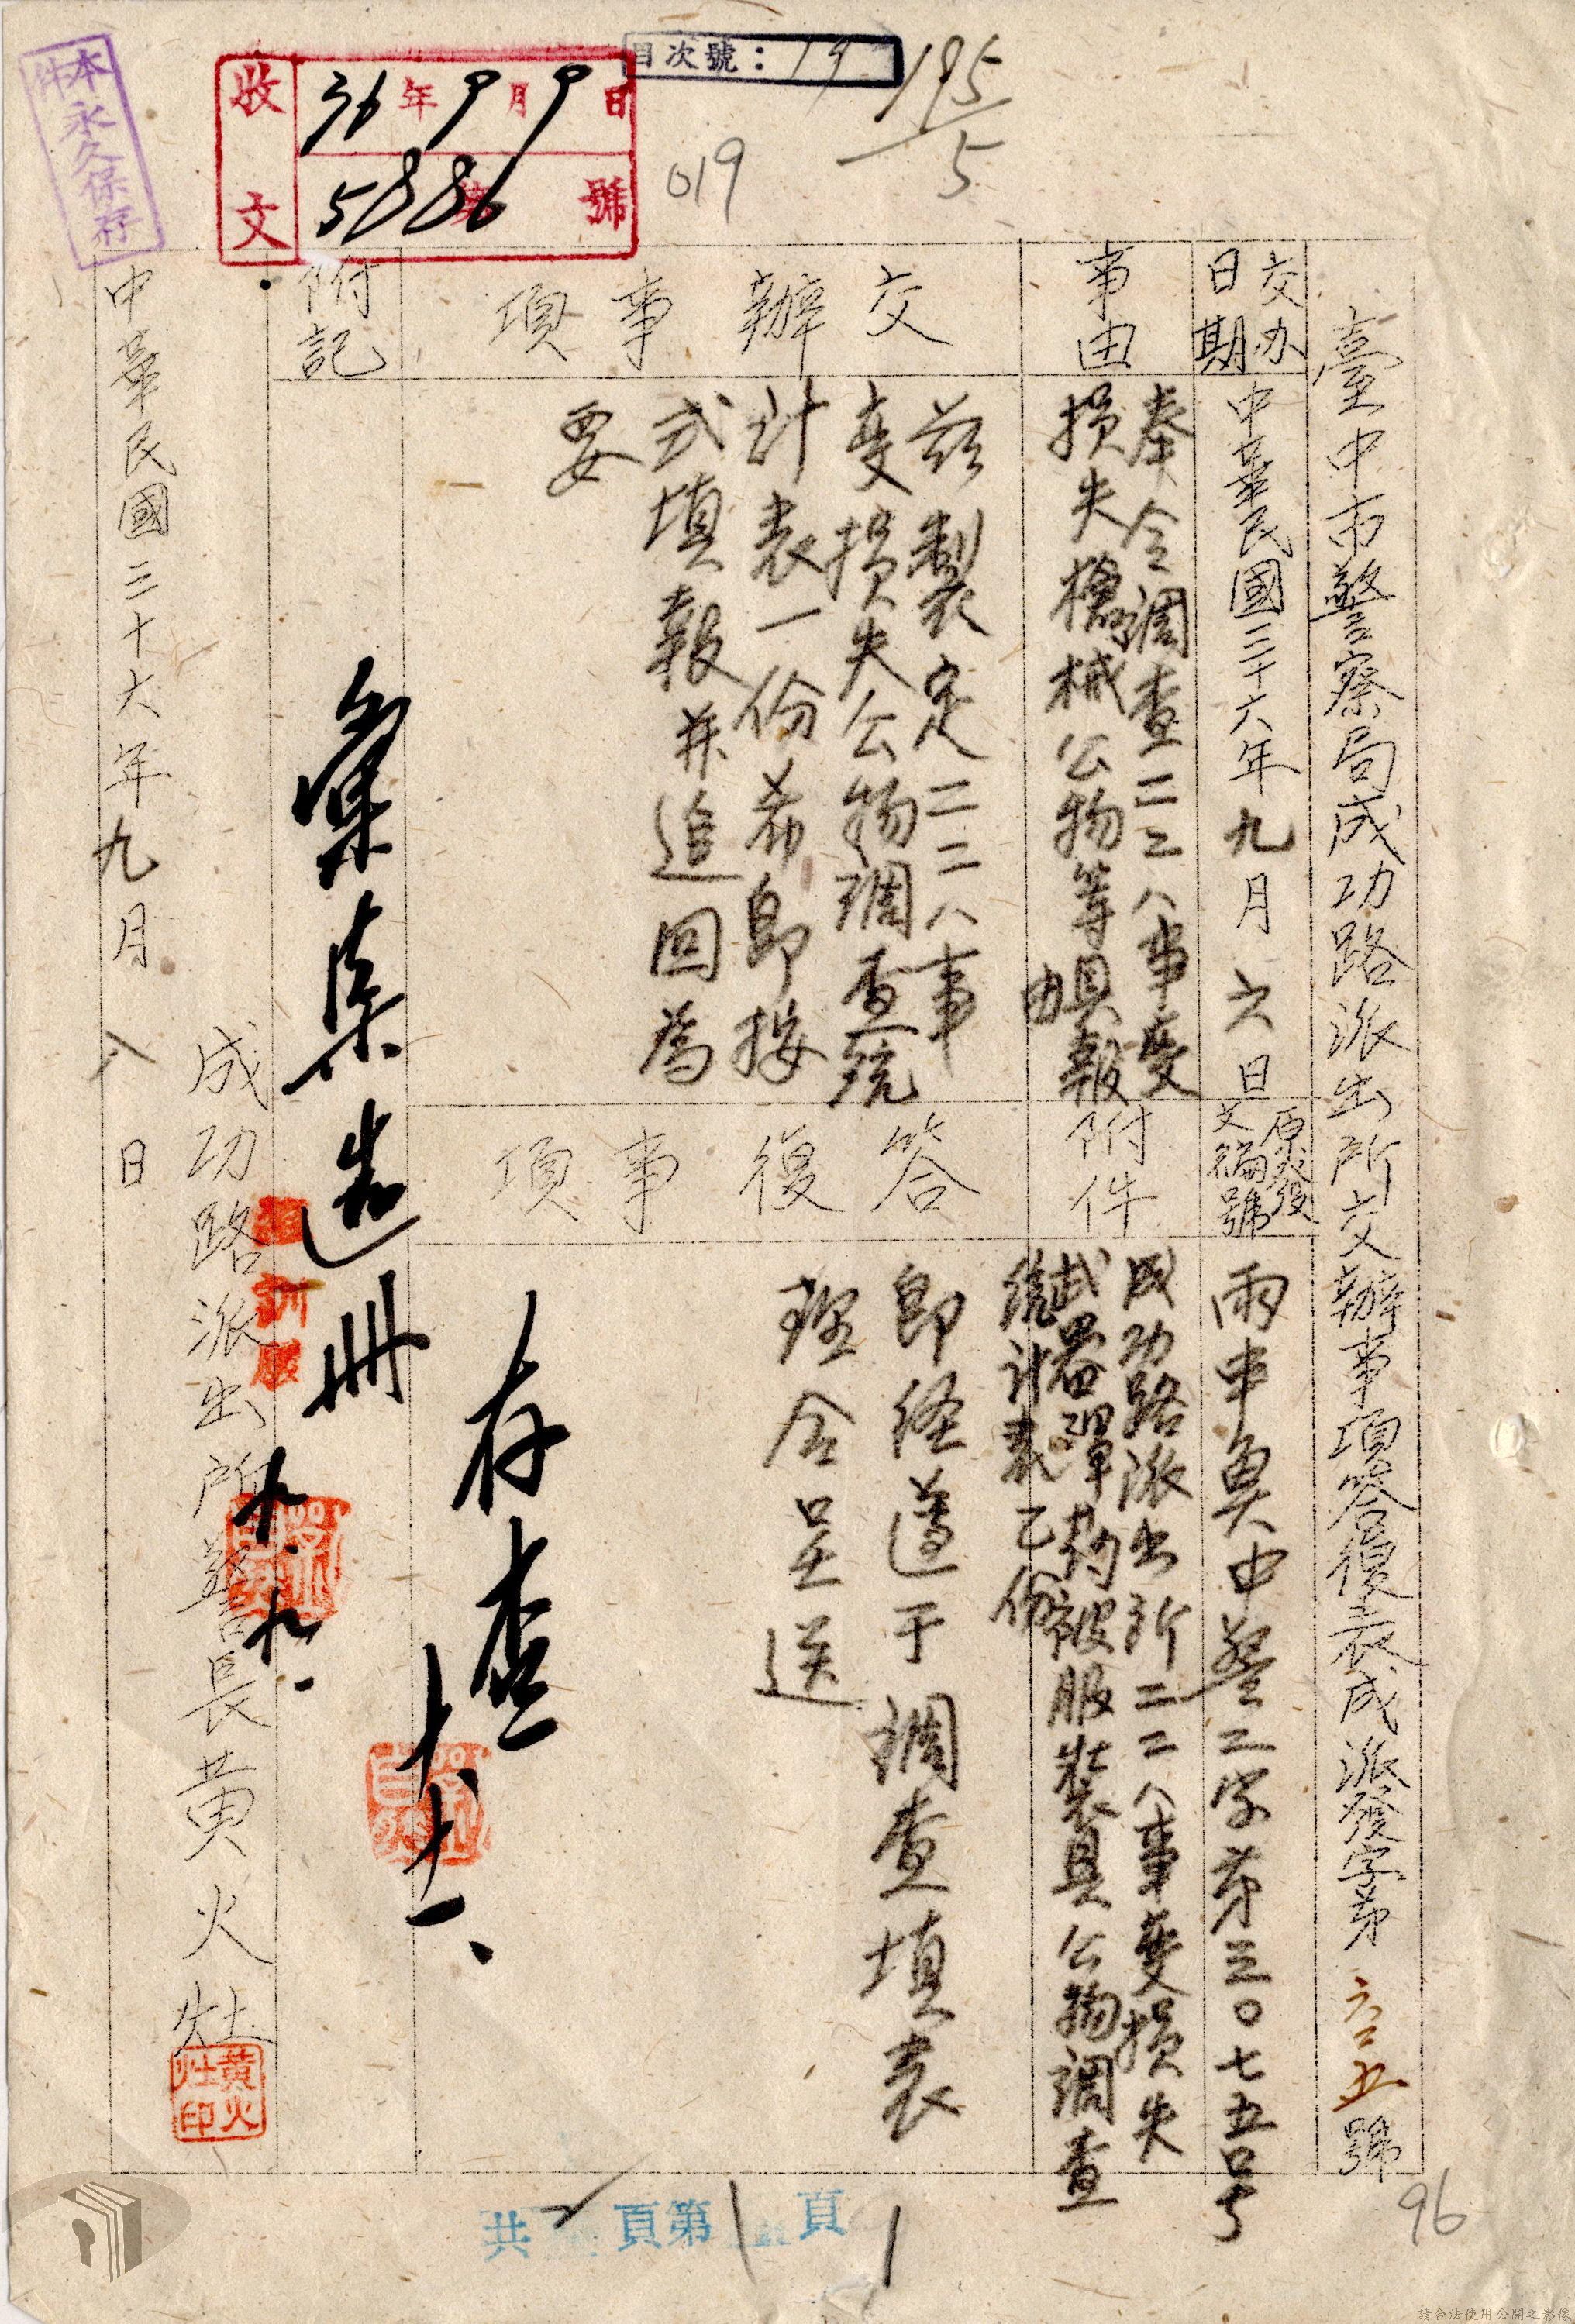 臺中市警察局成功路派出所交辦事項答復表成派發字第六五號
交办日期
中華民國三十六年九月六日
原發文編號
兩申奠中警二字第三〇七五号
事由
奉令調查二二八事變
損失槍械公物等具報
由
附件
成功路派出所二二八事變損失
武器彈葯被服裝具公物調查
統計表乙份
交辦事項
茲製定二二八事
變損失公物調查統
計表一份希即按
式填報并追回為
要
答復事項
即経遵于調查填表
理合呈送
存查
附記
彙集造冊
九.九.
成功路派出所警長黄火灶
黄火灶印
中華民國三十六年九月八日
本件永久保存
收文
36年9月9日
5886號
目次號：19
195/5
019
96
共2頁第1頁
1
請合法使用公開之影像